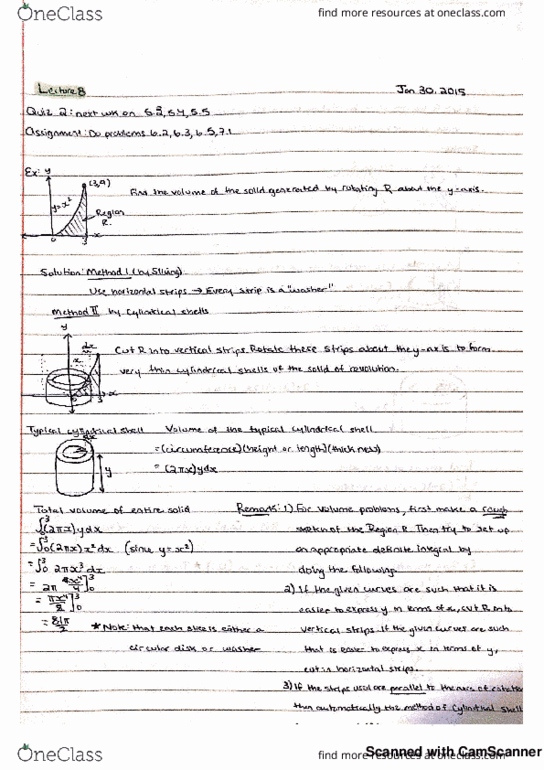 OneClass find more resources at oneclass.com
Lecture 8 Jan 30, 2015
Quiz 2: next wk on 5.3, 5.4, 5.5
Assignment: Do problems 6.2, 6.3, 6.5, 7.1
Ex: y
(3,9)
y=x²
Find the volume of the solid generated by rotating R about the y-axis.
Region
R
0 3 x
Solution: Method I (by Slicing)
Use horizontal strips → Every strip is a "washer"
Method II by cylindrical shells
y
dx
x
Cut R into vertical strips. Rotate these strips about the y-axis to form
very thin cylindrical shells of the solid of revolution.
3 x
Typical cylindrical shell Volume of the typical cylindrical shell
dx
= (circumference)(height or length)(thickness)
y
= (2πx)ydx
Total volume of entire solid Remark: 1) For volume problems, first make a rough
∫₀³(2πx)ydx sketch of the Region R. Then try to set up
= ∫₀³(2πx)x²dx (since y=x²) an appropriate definite integral by
= ∫₀³ 2πx³dx doing the following.
= 2π x⁴/4]₀³ 2) If the given curves are such that it is
easier to express y in terms of x, cut R into
= πx⁴/2]₀³ vertical strips. If the given curves are such
= 81π/2 *Note: that each slice is either a that is easier to express x in terms of y,
circular disk or washer cut in horizontal strips.
3) If the strips used are parallel to the axis of rotation
then automatically the method of cylindrical shell
OneClass find more resources at oneclass.com
Scanned with CamScanner